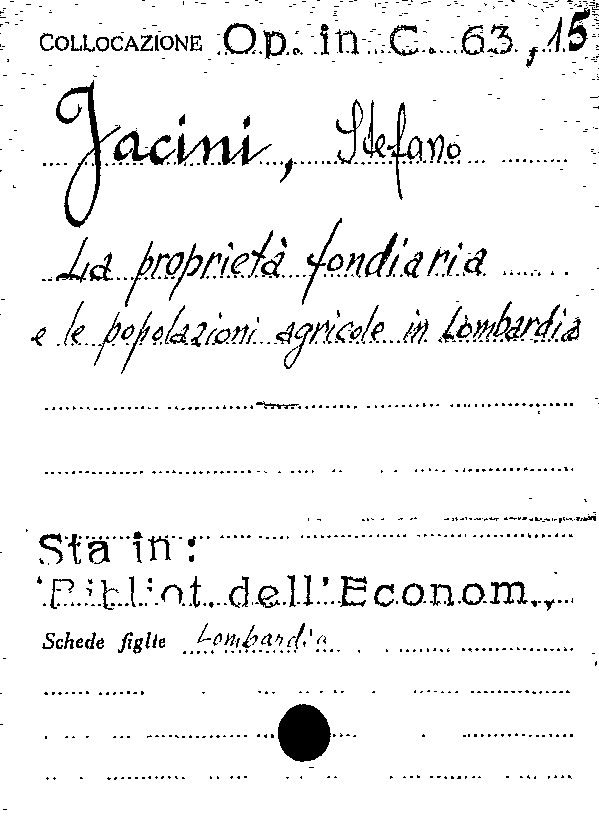 COLLOCAZIONE Op. in C. 63,15
Jacini, Stefano
La proprietà fondiaria
e le popolazioni agricole in Lombardia
Sta in:
"Bibliot. dell'Econom.,
Schede figlie Lombardia